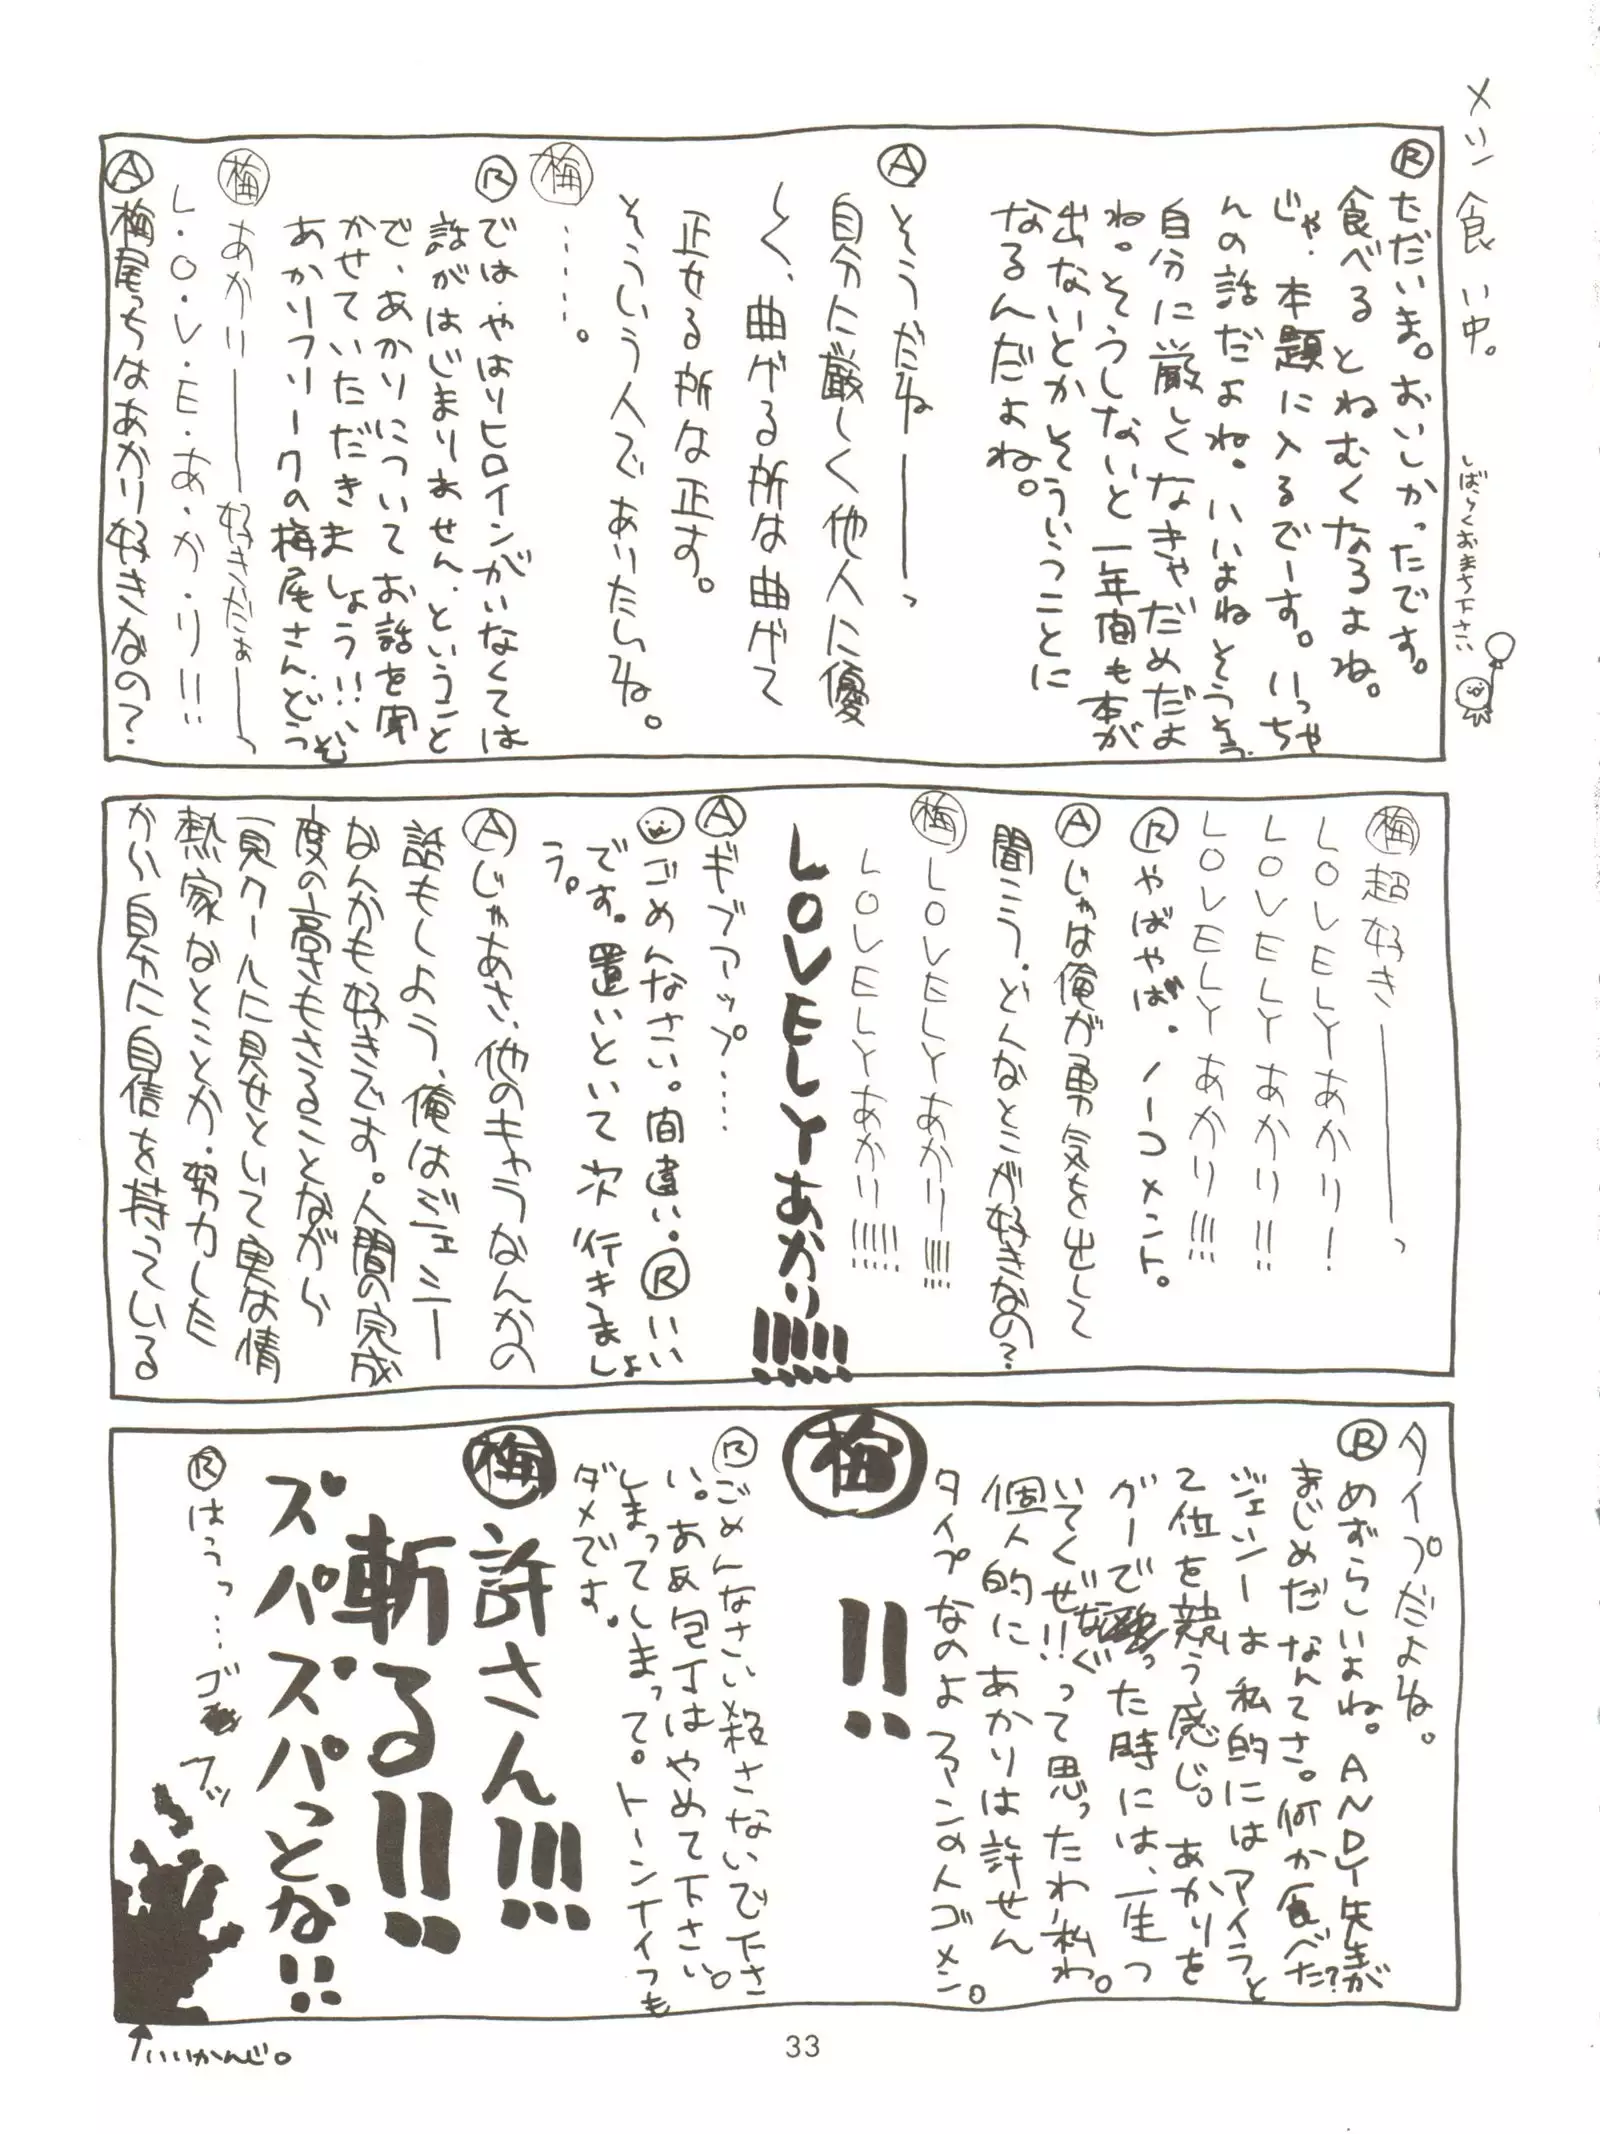 メシ食い中。
しばらくおまち下さい
Ⓡただいま。おいしかったです。
食べるとねむくなるよね。
じゃ、本題に入るでーす。いっちゃ
んの話だよね。いいよねそうそう。
自分に厳しくなきゃだめだよ
ね。そうしないと一年間も本が
出ないとかそういうことに
なるんだよね。
Ⓐそうだねーーっ
自分に厳しく他人に優
しく、曲げる所は曲げて
正せる所な正す。
そういう人でありたいね。
㊍梅……。
Ⓡでは、やはりヒロインがいなくては
話がはじまりません、ということ
で、あかりについてお話を聞
かせていただきましょう!!、
あかりフリークの梅尾さん、どうぞ
梅 あかりーー好きだぁーーっ
L・O・V・E・あ・か・り!!
Ⓐ梅尾っちはあかり好きなの？
梅 超好きーーーっ
LOVELYあかり！
LOVELYあかり!!
LOVELYあかり!!!
Ⓡやばやば、ノーコメント。
Ⓐじゃは俺が勇気を出して
聞こう、どんなとこが好きなの？
梅 LOVELYあかり!!!!
LOVELYあかり!!!!!
LOVELYあかり!!!!!!
Ⓐギブアップ……
ごめんなさい。間違い。Ⓡいい
です。置いといて次行きましょ
う。
Ⓐじゃあさ、他のキャラなんかの
話もしよう、俺はジェシー
なんかも好きです。人間の完成
度の高さもさることながら
一見クールに見せといて実は情
熱家なとことか、努力した
から自分に自信を持っている
タイプだよね。
Ⓡめずらしいよね。ANDY先生が
まじめだなんてさ。何か食べた？
ジェシーは私的にはアイラと
て位を競う感じ。あかりを
グーでなぐった時には、一生つ
いてくぜ!!って思ったわ私わ。
個人的にあかりは許せん
タイプなのよファンの人ゴメン。
梅 !!
Ⓡごめんなさい殺さないで下さ
い。ああ包丁はやめて下さい。
しまってしまって。トーンナイフも
ダメです。
梅 許さん!!!
斬る!!
ズパズパっとな!!
Ⓡはうっ…ゴフッ
↑いいかんじ。
33